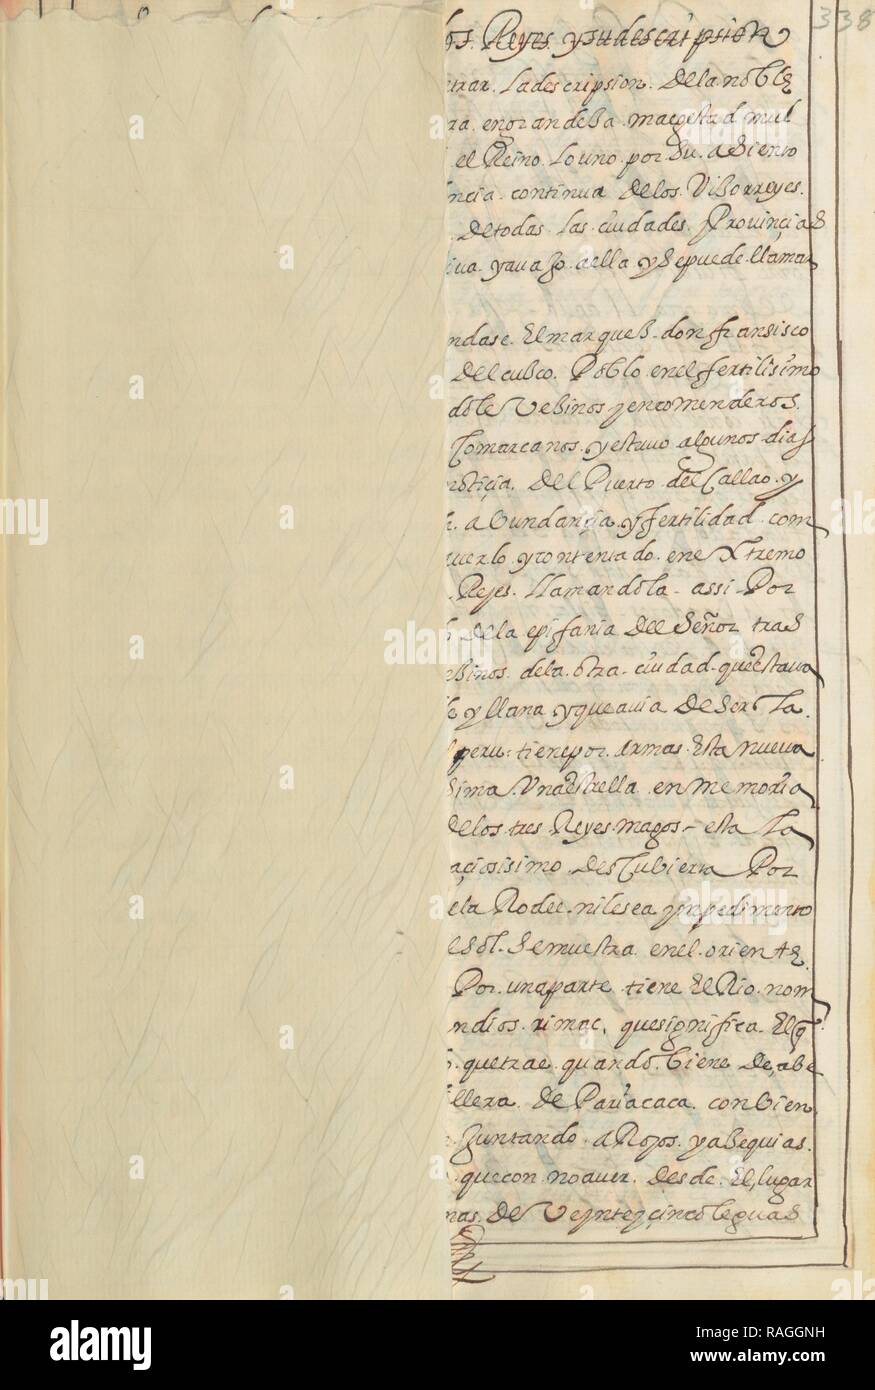 338
los Reyes y su descripsion
trar. La descripsion. De la noble
ra en grandeBa. magestad mul
el Reino. Lo uno. por Su. aSiento
ncia. continua Delos. ViBorreyes.
De todas. las. ciudades. ProvinçiaS
iua. y avaJo. aella y Sepuede. llamar
ndase. El marqueB. don fransisco
Del cuBco. PobLo enel fertilisimo
doLe VeBinos y encomenderoS
Comarcanos. y estuuo algunos. dias
notiçia. Del Puerto del Callao. y
aBundançia. y fertilidad. com
uerlo. y contentado. en eXtremo
Reyes. llamandola. assi Por
De la epifania Del Señor tras
eBinos. de la otra. ciudad. que Estaua
y llana y que auia De Ser La.
peru. tiene por. Armas. Esta nueua
sima. Una Estrella. en memoria
Delos. tres. Reyes. magos. esta La
açiosisimo DesCubierta Por
eta Rodee. ni le sea ympedimento
eSol. Se muestra. en el. oriente
Por. una parte. tiene El Rio. nom
ndios. rimac, que significa. El q
que trae. quando. biene De, abe
llera. De Pariacaca. con bien
Juntando. aRoJos. y aBequias.
que con no auer. Desde. El, lugar
mas. De Veynte y çinco leguas
alamy
alamy
Image ID: RAGGNH
www.alamy.com